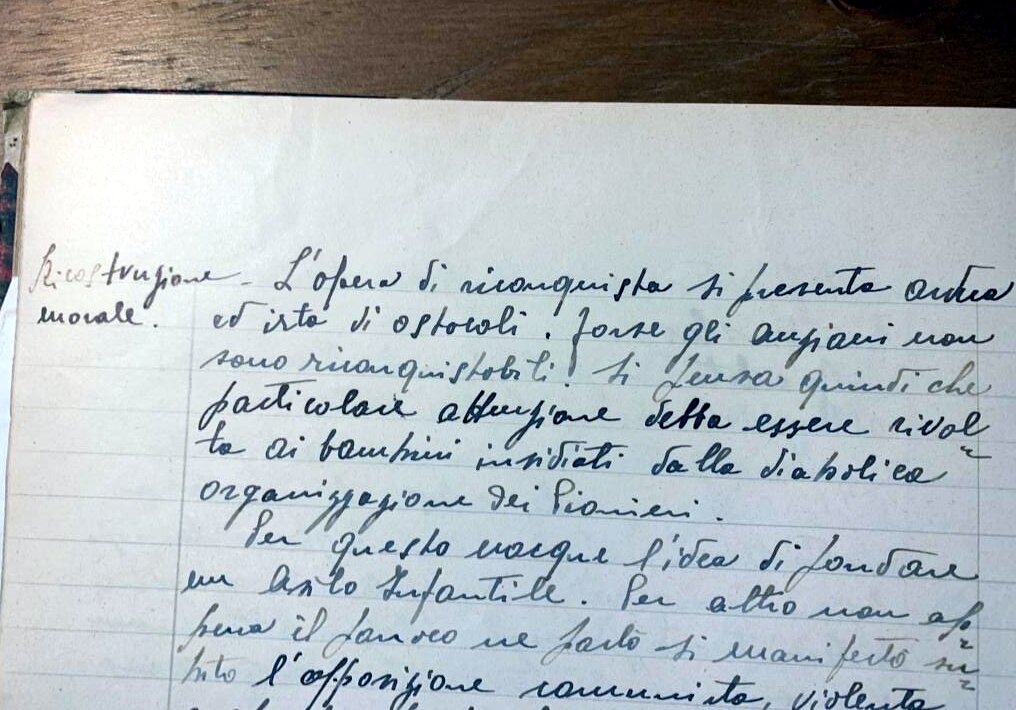 Ricostruzione - L'opera di riconquista si presenta ardua
morale. ed irta di ostacoli. Forse gli anziani non
sono riconquistabili! Si pensa quindi che
particolare attenzione debba essere rivol
ta ai bambini insidiati dalla diabolica
organizzazione dei Pionieri.
Per questo nacque l'idea di fondare
un Asilo Infantile. Per altro non ap
pena il parroco ne parlò si manifestò su
bito l'opposizione comunista, violenta